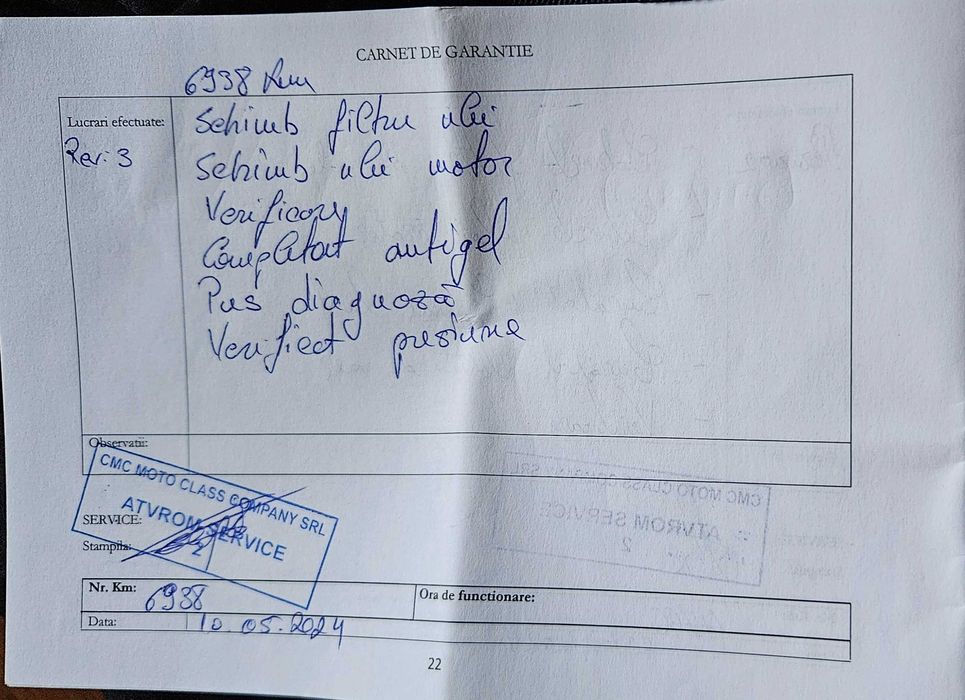 CARNET DE GARANTIE
6938 km
Lucrari efectuate:
Rev: 3
Schimb filtru ulei
Schimb ulei motor
Verificary
Completat antigel
Pus diagnoză
Verificat presiune
Observatii:
CMC MOTO CLASS COMPANY SRL
ATVROM SERVICE
2
SERVICE:
Stampila:
Nr. Km: 6938
Ora de functionare:
Data: 10.05.2024
22